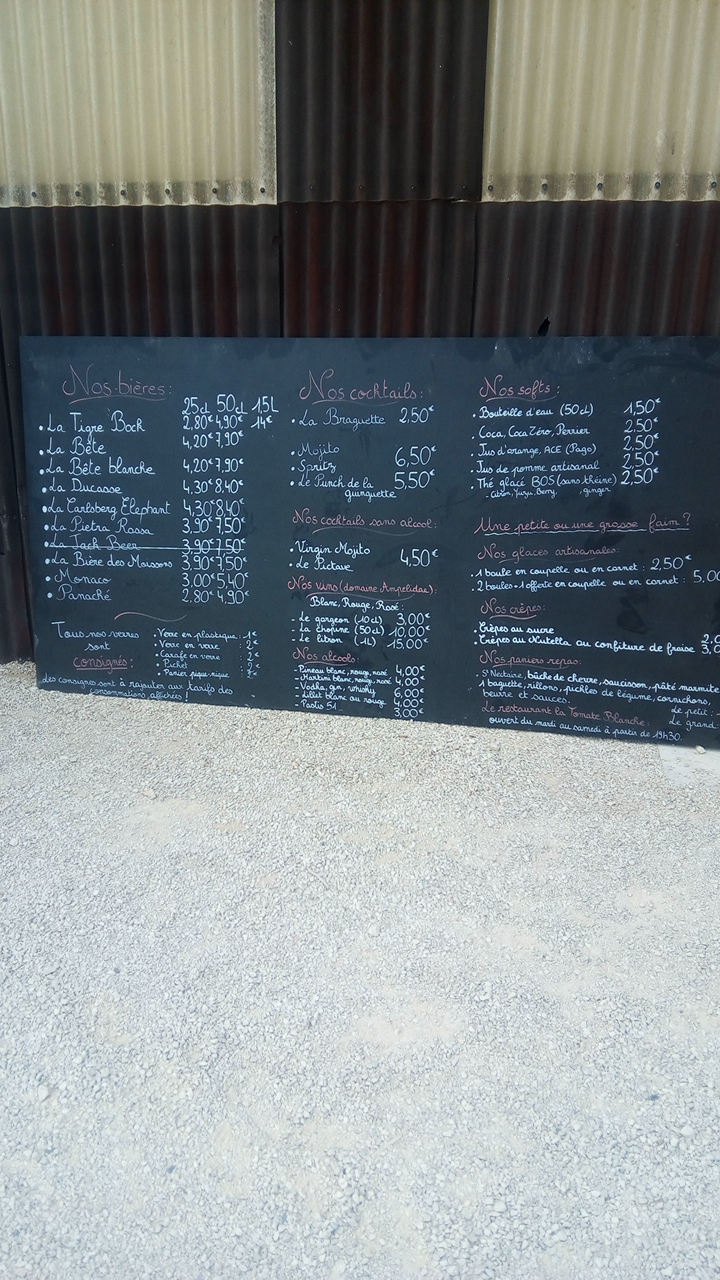 Nos bières:
25cl 50cl 1,5L
• La Tigre Bock 2,80€ 4,90€ 14€
• La Bête 4,20€ 7,90€
• La Bête blanche 4,20€ 7,90€
• La Ducasse 4,30€ 8,40€
• La Carlsberg Elephant 4,30€ 8,40€
• La Pietra Rossa 3,90€ 7,50€
• La Jack Beer 3,90€ 7,50€
• La Bière des Moissons 3,90€ 7,50€
• Monaco 3,00€ 5,40€
• Panaché 2,80€ 4,90€
Tous nos verres
sont
consignés:
• Verre en plastique : 1€
• Verre en verre : 2€
• Carafe en verre :
• Pichet :
• Panier pique-nique :
des consignes sont à rajouter aux tarifs des
consommations affichés !
Nos cocktails:
• La Braguette 2,50€
• Mojito
• Spritz 6,50€
• Le Punch de la 5,50€
guinguette
Nos cocktails sans alcool:
• Virgin Mojito
• Le Pictave 4,50€
Nos vins (domaine Ampelidae):
Blanc, Rouge, Rosé:
- Le gorgeon (10cl) 3,00€
- La chopine (50cl) 10,00€
- Le litron (1L) 15,00€
Nos alcools:
- Pineau blanc, rouge, rosé 4,00€
- Martini blanc, rouge, rosé 4,00€
- Vodka, gin, whisky 6,00€
- Lillet blanc ou rouge 4,00€
- Pastis 51 3,00€
Nos softs:
• Bouteille d'eau (50cl) 1,50€
• Coca, Coca Zéro, Perrier 2,50€
• Jus d'orange, ACE (Pago) 2,50€
• Jus de pomme artisanal 2,50€
• Thé glacé BOS (sans théine) 2,50€
- Citron, Yuzu, Berry, ginger
Une petite ou une grosse faim ?
Nos glaces artisanales:
• 1 boule en coupelle ou en cornet : 2,50€
• 2 boules + 1 offerte en coupelle ou en cornet : 5,00
Nos crêpes:
• Crêpes au sucre
• Crêpes au Nutella ou confiture de fraise 3,0
Nos paniers repas:
St Nectaire, bûche de chèvre, saucisson, pâté marmite
1 baguette, rillons, pickles de légume, cornichons,
beurre et sauces. Le petit :
Le restaurant la Tomate Blanche: Le grand:
ouvert du mardi au samedi à partir de 19h30.